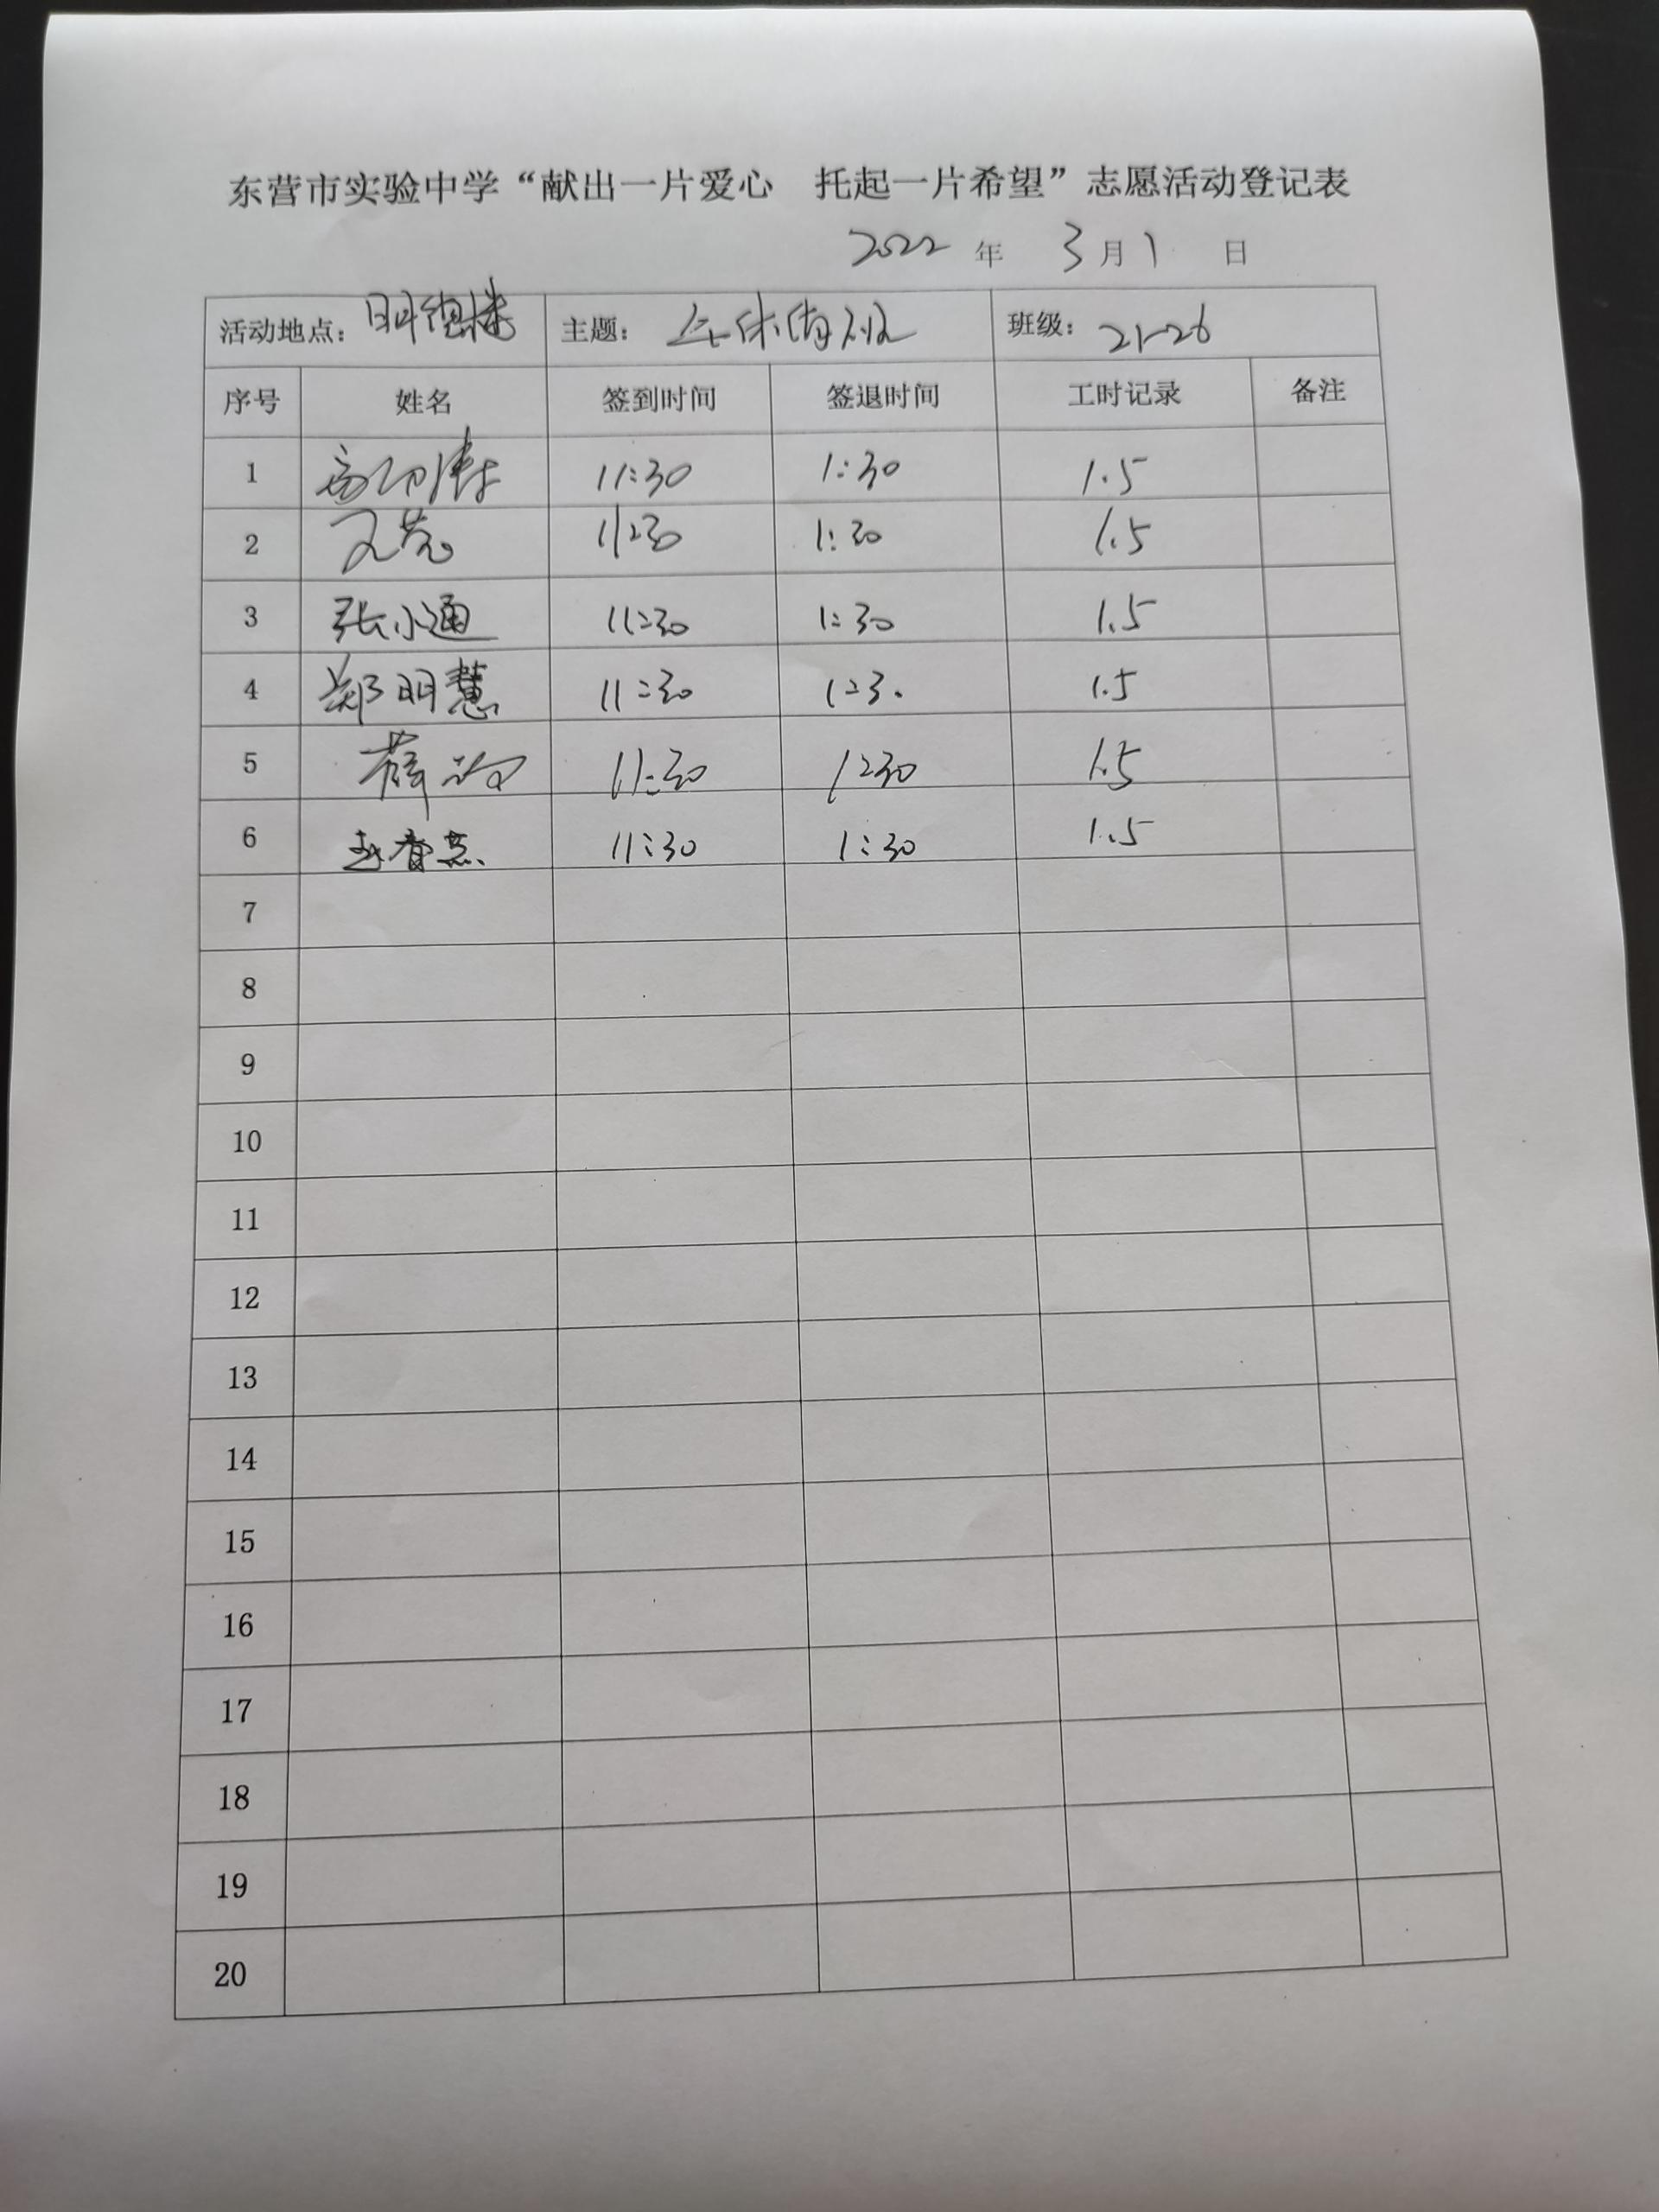 东营市实验中学“献出一片爱心 托起一片希望”志愿活动登记表
2022 年 3 月 1 日
活动地点：明德楼 主题：午休值班 班级：21-26
序号 姓名 签到时间 签退时间 工时记录 备注
1 11:30 1:30 1.5
2 11:30 1:30 1.5
3 张小通 11:30 1:30 1.5
4 郑明慧 11:30 1:30 1.5
5 11:30 1:30 1.5
6 11:30 1:30 1.5
7
8
9
10
11
12
13
14
15
16
17
18
19
20